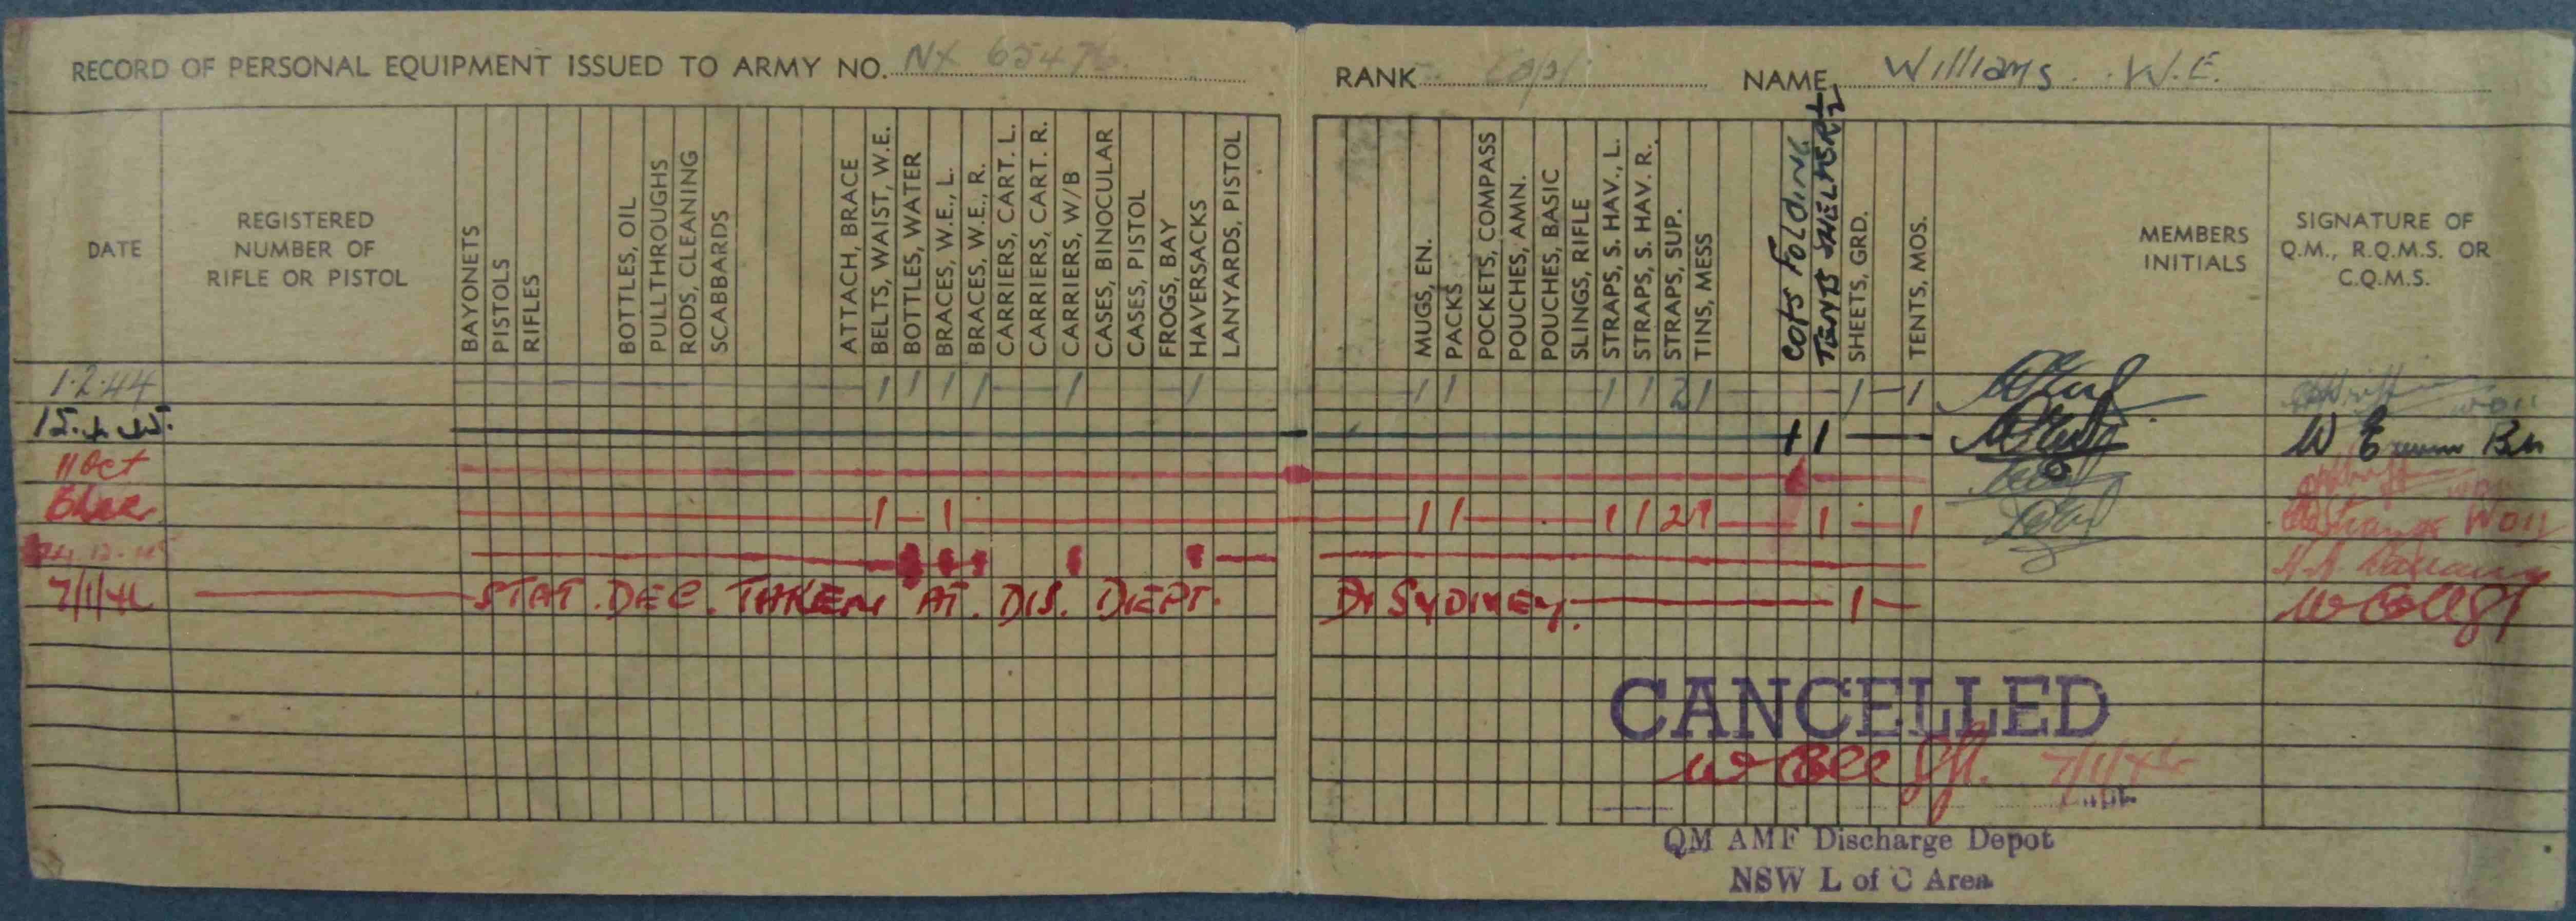 RECORD OF PERSONAL EQUIPMENT ISSUED TO ARMY NO. NX 65476 RANK NAME Williams W.E.
DATE
REGISTERED
NUMBER OF
RIFLE OR PISTOL
BAYONETS
PISTOLS
RIFLES
BOTTLES, OIL
PULLTHROUGHS
RODS, CLEANING
SCABBARDS
ATTACH, BRACE
BELTS, WAIST, W.E.
BOTTLES, WATER
BRACES, W.E., L.
BRACES, W.E., R.
CARRIERS, CART. L.
CARRIERS, CART. R.
CARRIERS, W/B
CASES, BINOCULAR
CASES, PISTOL
FROGS, BAY
HAVERSACKS
LANYARDS, PISTOL
MUGS, EN.
PACKS
POCKETS, COMPASS
POUCHES, AMN.
POUCHES, BASIC
SLINGS, RIFLE
STRAPS, S. HAV., L.
STRAPS, S. HAV. R.
STRAPS, SUP.
TINS, MESS
COTS FOLDING
TENTS SHELTER ½
SHEETS, GRD.
TENTS, MOS.
MEMBERS
INITIALS
SIGNATURE OF
Q.M., R.Q.M.S. OR
C.Q.M.S.
1·2·44 1 1 1 1 1 1 1 1 1 1 2 1 1 1 WO II
1 1
11 Oct
1 1 1 1 1 1 2 1 1 1 WO II
7/1/46 STAT. DEC. TAKEN AT. DIS. DEPT. SYDNEY. 1
CANCELLED
7/1/46
QM AMF Discharge Depot
NSW L of C Area